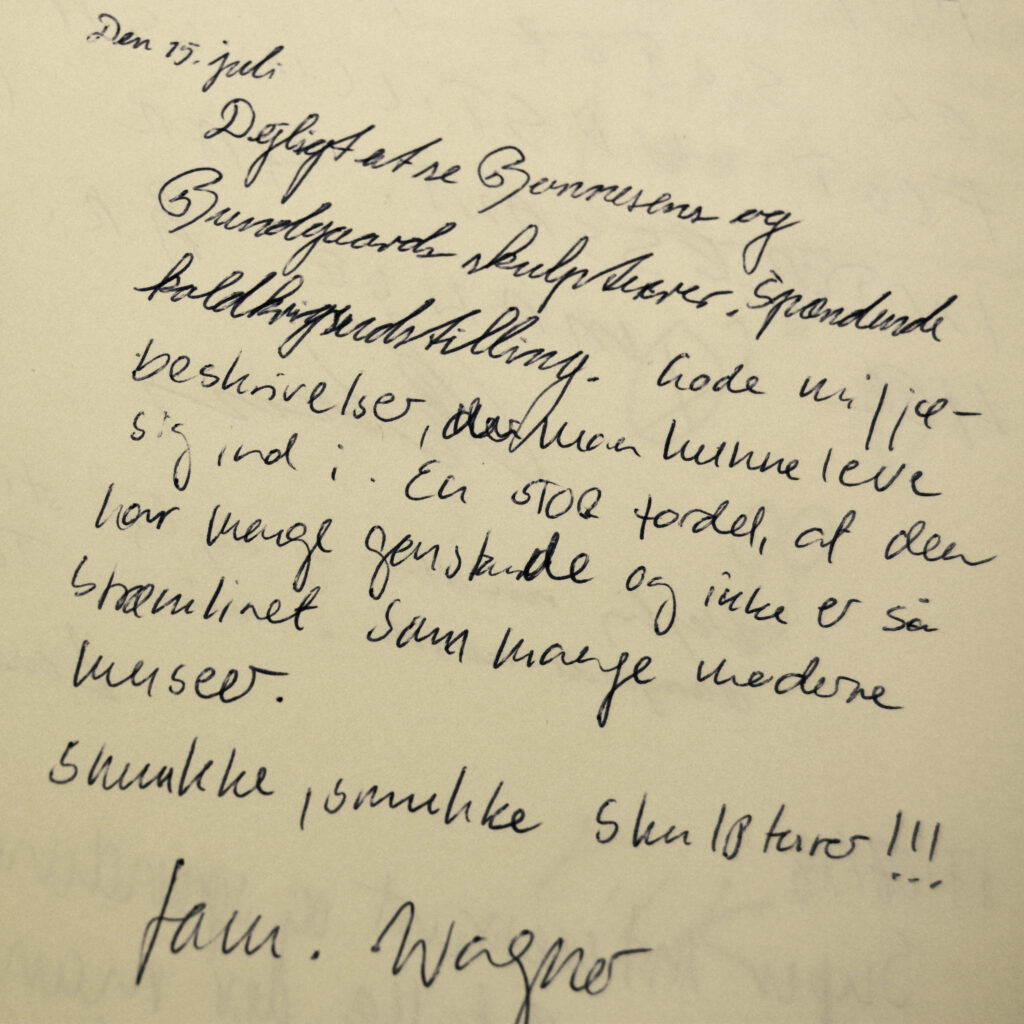 Den 15. juli
Dejligt at se Bonnesens og
Bundgaards skulpturer. Spændende
koldkrigsudstilling. Gode miljø-
beskrivelser, der man kunne leve
sig ind i. En stor fordel, at den
har mange genstande og ikke er så
strømlinet som mange moderne
museer.
Smukke, smukke skulpturer!!!
fam. Wagner